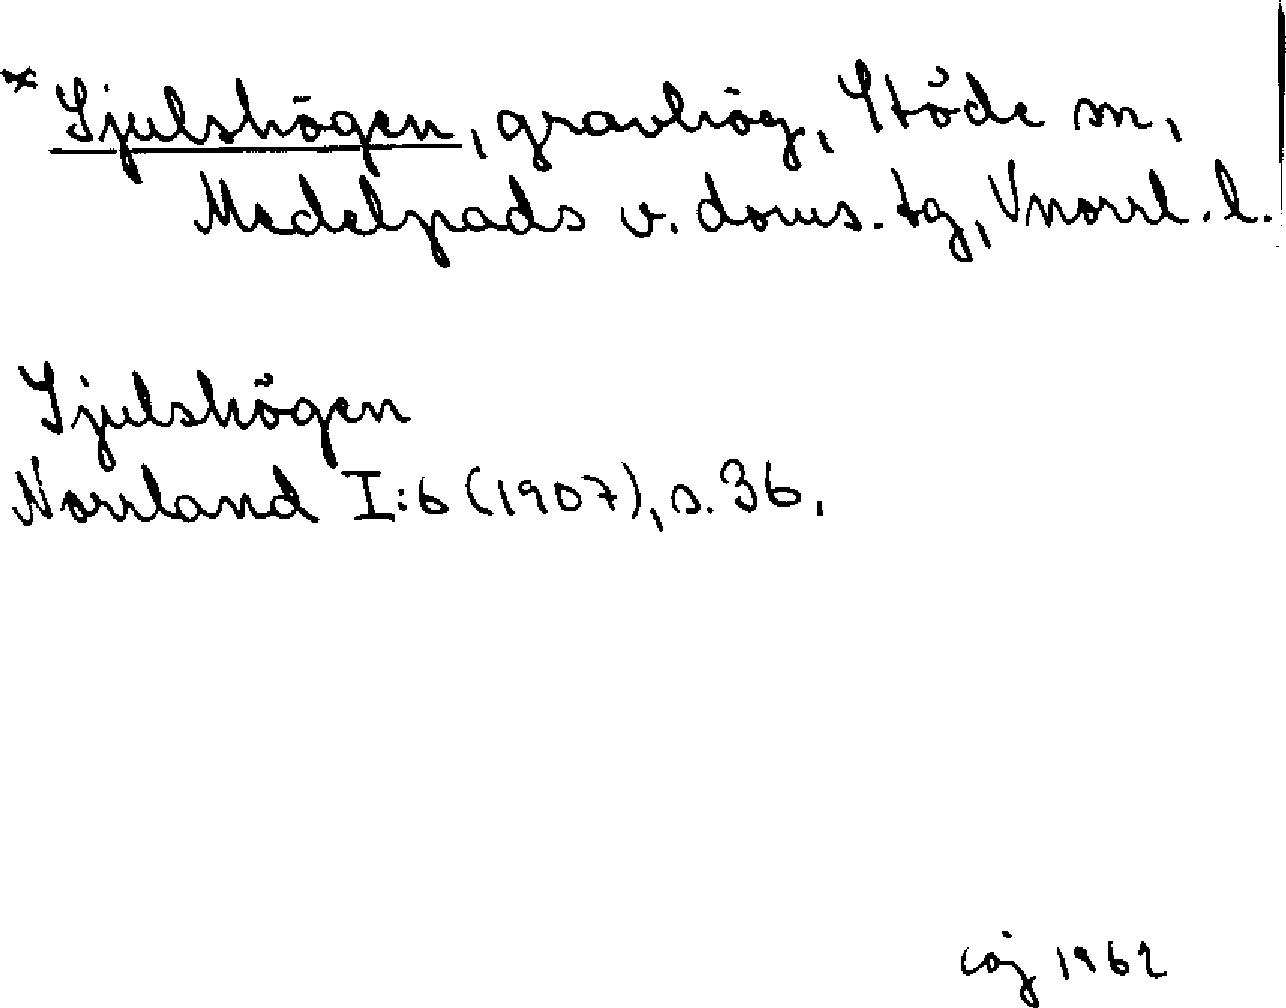 * Sjulshögen, gravhög, Stöde sn,
Medelpads v. doms. tg, Vnorrl. l.
Sjulshögen
Norrland I:6 (1907), s. 36.
1962